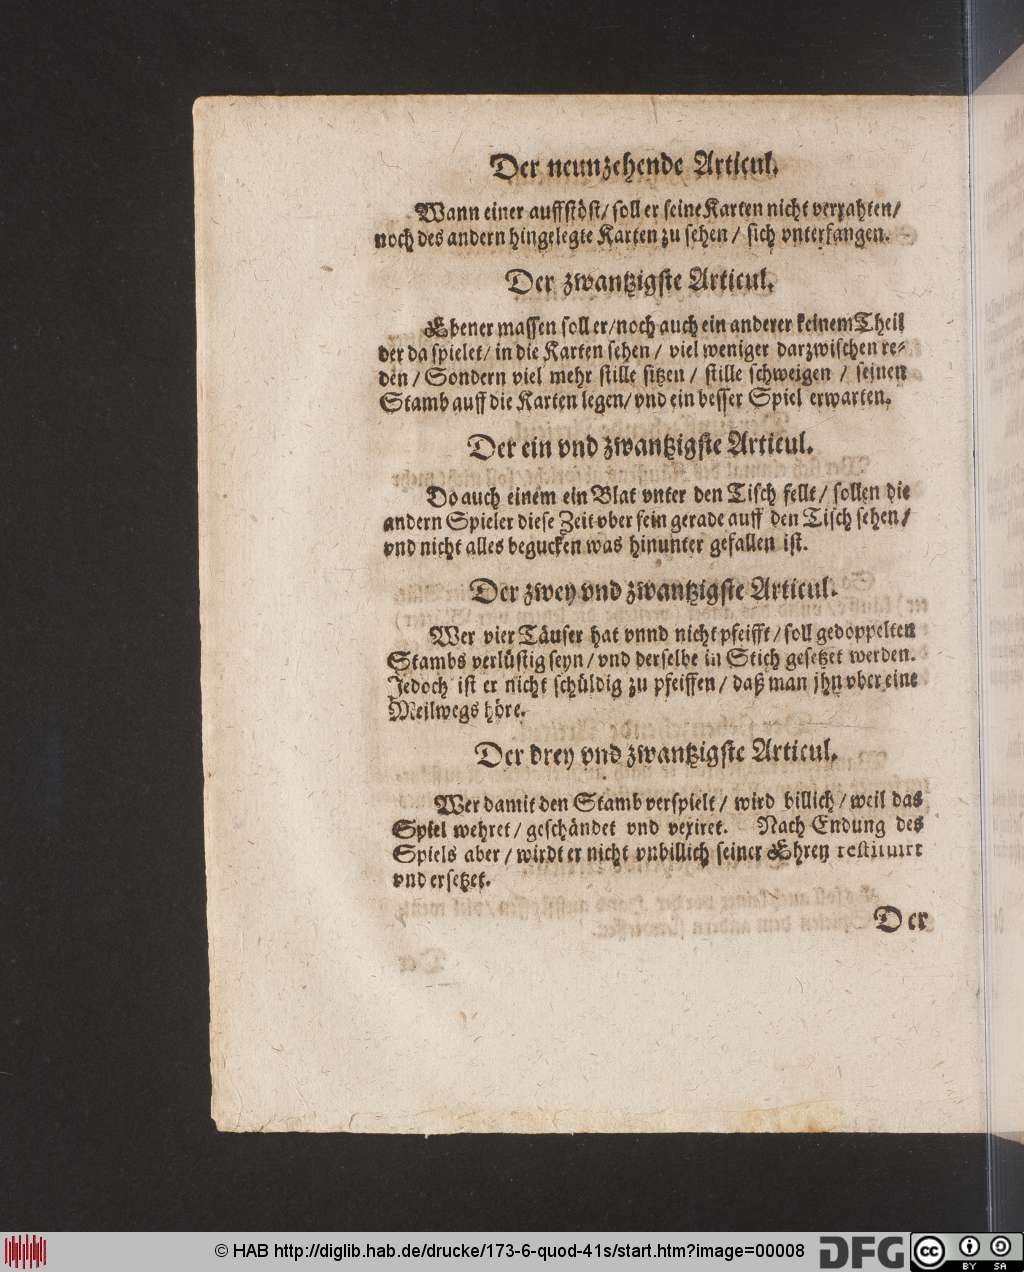 Der neunzehende Articul.
Wann einer auffstöst/ soll er seine Karten nicht verrahten/
noch des andern hingelegte Karten zu sehen / sich vnterfangen.
Der zwantzigste Articul.
Ebener massen soll er/noch auch ein anderer keinem Theil
der da spielet/ in die Karten sehen / viel weniger darzwischen re-
den / Sondern viel mehr stille sitzen / stille schweigen / seinen
Stamb auff die Karten legen/ vnd ein besser Spiel erwarten.
Der ein vnd zwantzigste Articul.
Do auch einem ein Blat vnter den Tisch fellt / sollen die
andern Spieler diese Zeit vber fein gerade auff den Tisch sehen/
vnd nicht alles begucken was hinunter gefallen ist.
Der zwey vnd zwantzigste Articul.
Wer vier Täuser hat vnnd nicht pfeifft / soll gedoppelten
Stambs verlüstig seyn / vnd derselbe in Stich gesetzet werden.
Jedoch ist er nicht schüldig zu pfeiffen / daß man jhn vber eine
Meilwegs höre.
Der drey vnd zwantzigste Articul.
Wer damit den Stamb verspielt / wird billich / weil das
Spiel wehret / geschändet vnd vexiret. Nach Endung des
Spiels aber / wirdt er nicht vnbillich seiner Ehren restituirt
vnd ersetzet.
Der
© HAB http://diglib.hab.de/drucke/173-6-quod-41s/start.htm?image=00008
DFG
cc
BY SA